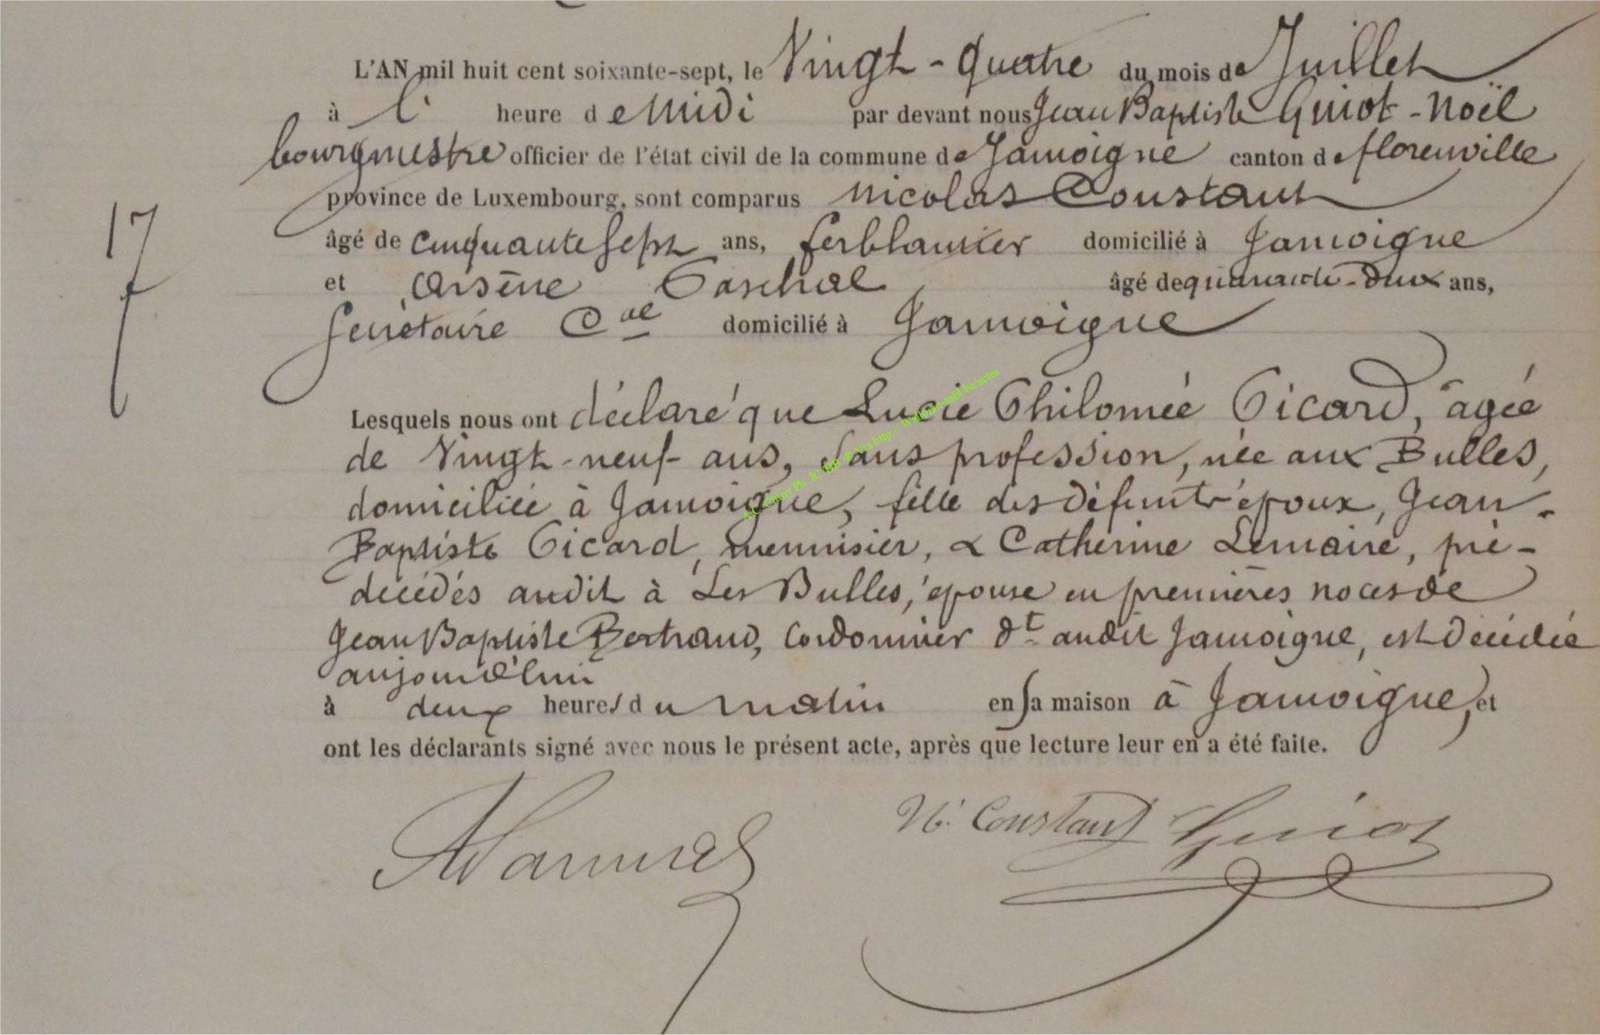 L'AN mil huit cent soixante-sept, le Vingt-quatre du mois de Juillet
à l' heure de Midi par devant nous Jean Baptiste Guiot-Noël
bourgmestre officier de l'état civil de la commune de Jamoigne canton de florenville
province de Luxembourg, sont comparus Nicolas Constant
âgé de cinquante sept ans, ferblantier domicilié à Jamoigne
et Arsène Paschal âgé de quarante-deux ans,
17
Secrétaire Cal domicilié à Jamoigne
Lesquels nous ont déclaré que Lucie Philomée Picard, âgée
de Vingt-neuf ans, sans profession, née aux Bulles,
domiciliée à Jamoigne, fille des défunts époux, Jean-
Baptiste Picard, menuisier, & Catherine Lemaire, pré-
décédés audit à Les Bulles, épouse en premières noces de
Jean Baptiste Bertrand, Cordonnier dt audit Jamoigne, est décédée
aujourd'hui
à deux heures du matin en sa maison à Jamoigne, et
ont les déclarants signé avec nous le présent acte, après que lecture leur en a été faite.
N. Constant Guiot